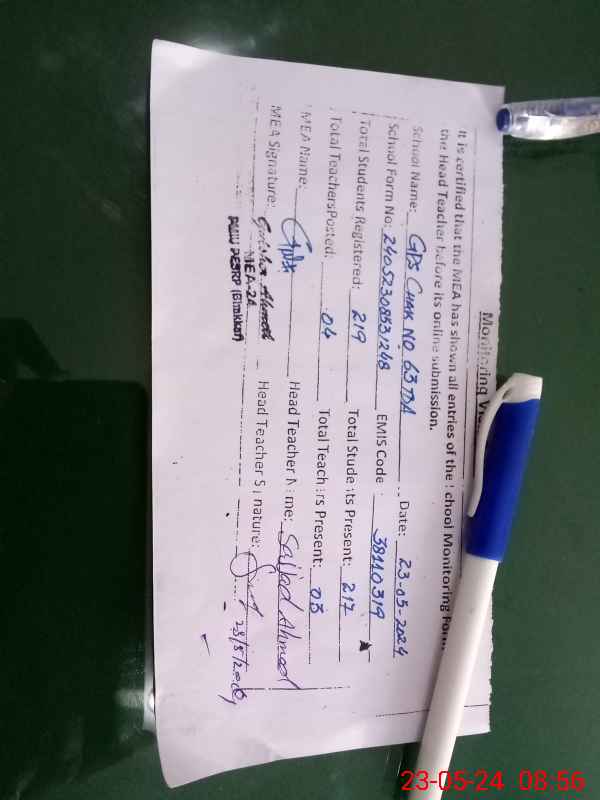 Monitoring
It is certified that the MEA has shown all entries of the School Monitoring Form
the Head Teacher before its online submission.
School Name: GPS CHAK NO 63 TDA Date: 23-05-2024
School Form No: 24052308531248 EMIS Code: 38110319
Total Students Registered: 219 Total Students Present: 217
Total Teachers Posted: 04 Total Teachers Present: 03
MEA Name: Head Teacher Name: Sajjad Ahmed
MEA Signature: Ahmed Head Teacher Signature:
MEA-24
PMIU PESRP (Bhakkar)
23-05-24 08:56